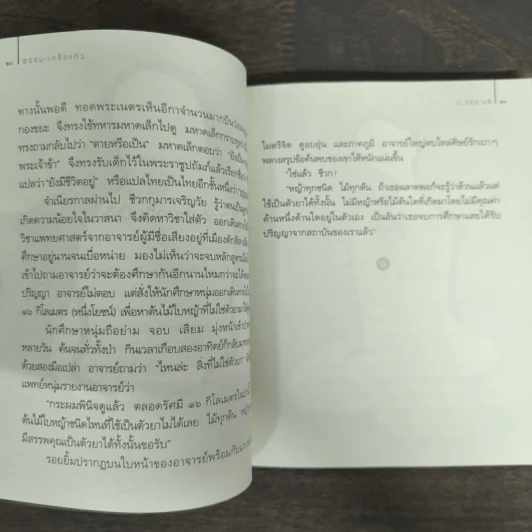 ธรรมะเกร็ดแก้ว
ทางนั้นพอดี ทอดพระเนตรเห็นอีกาจำนวนมากบินว่อน
กองขยะ จึงทรงใช้ทหารมหาดเล็กไปดู มหาดเล็กกราบทูล
ทรงถามกลับไปว่า "ตายหรือเป็น" มหาดเล็กตอบว่า "ยังเป็น
พระเจ้าข้า" จึงทรงรับเด็กไว้ในพระราชูปถัมภ์แล้วเรียกชื่อ
แปลว่า "ยังมีชีวิตอยู่" หรือแปลไทยเป็นไทยอีกชั้นหนึ่งว่า
จำเนียรกาลผ่านไป ชีวกกุมารเจริญวัย รู้ว่าตนเป็น
เกิดความน้อยใจในวาสนา จึงคิดหาวิชาใส่ตัว ออกเดินทาง
วิชาแพทยศาสตร์จากอาจารย์ผู้มีชื่อเสียงอยู่ที่เมืองตักสิลา
ศึกษาอยู่นานจนเบื่อหน่าย มองไม่เห็นว่าจะจบหลักสูตรเมื่อ
เข้าไปถามอาจารย์ว่าจะต้องศึกษากันอีกนานไหมกว่าจะได้
ปริญญา อาจารย์ไม่ตอบ แต่สั่งให้นักศึกษาหนุ่มออกเดินทางไป
๑๖ กิโลเมตร (หนึ่งโยชน์) เพื่อหาต้นไม้ใบหญ้าที่ไม่ใช่ตัวยา
นักศึกษาหนุ่มถือย่าม จอบ เสียม มุ่งหน้าเข้าป่า
หลายวัน ค้นจนทั่วทั้งป่า กินเวลาเกือบสองอาทิตย์ก็กลับมา
ด้วยสองมือเปล่า อาจารย์ถามว่า "ไหนล่ะ สิ่งที่ไม่ใช่ตัวยา"
แพทย์หนุ่มรายงานอาจารย์ว่า
"กระผมพินิจดูแล้ว ตลอดรัศมี ๑๖ กิโลเมตรในป่า
ต้นไม้ใบหญ้าชนิดไหนที่ใช้เป็นตัวยาไม่ได้เลย ไม้ทุกต้น
มีสรรพคุณเป็นตัวยาได้ทั้งนั้นขอรับ"
รอยยิ้มปรากฏบนใบหน้าของอาจารย์พร้อมกับ
ไมตรีจิต ดูอบอุ่น และภาคภูมิ อาจารย์ใหญ่ตบไหล่ศิษย์รักเบาๆ
พลางสรุปข้อค้นพบของเขาให้หนักแน่นขึ้น
"ใช่แล้ว ชีวก!
"หญ้าทุกชนิด ไม้ทุกต้น ถ้าเธอฉลาดพอก็จะรู้ว่าล้วนแล้วแต่
ใช้เป็นตัวยาได้ทั้งนั้น ไม่มีหญ้าหรือไม้ต้นใดที่เกิดมาโดยไม่มีคุณค่า
ด้านหนึ่งด้านใดอยู่ในตัวเอง เป็นอันว่าเธอจบการศึกษาและได้รับ
ปริญญาจากสถาบันของเราแล้ว"